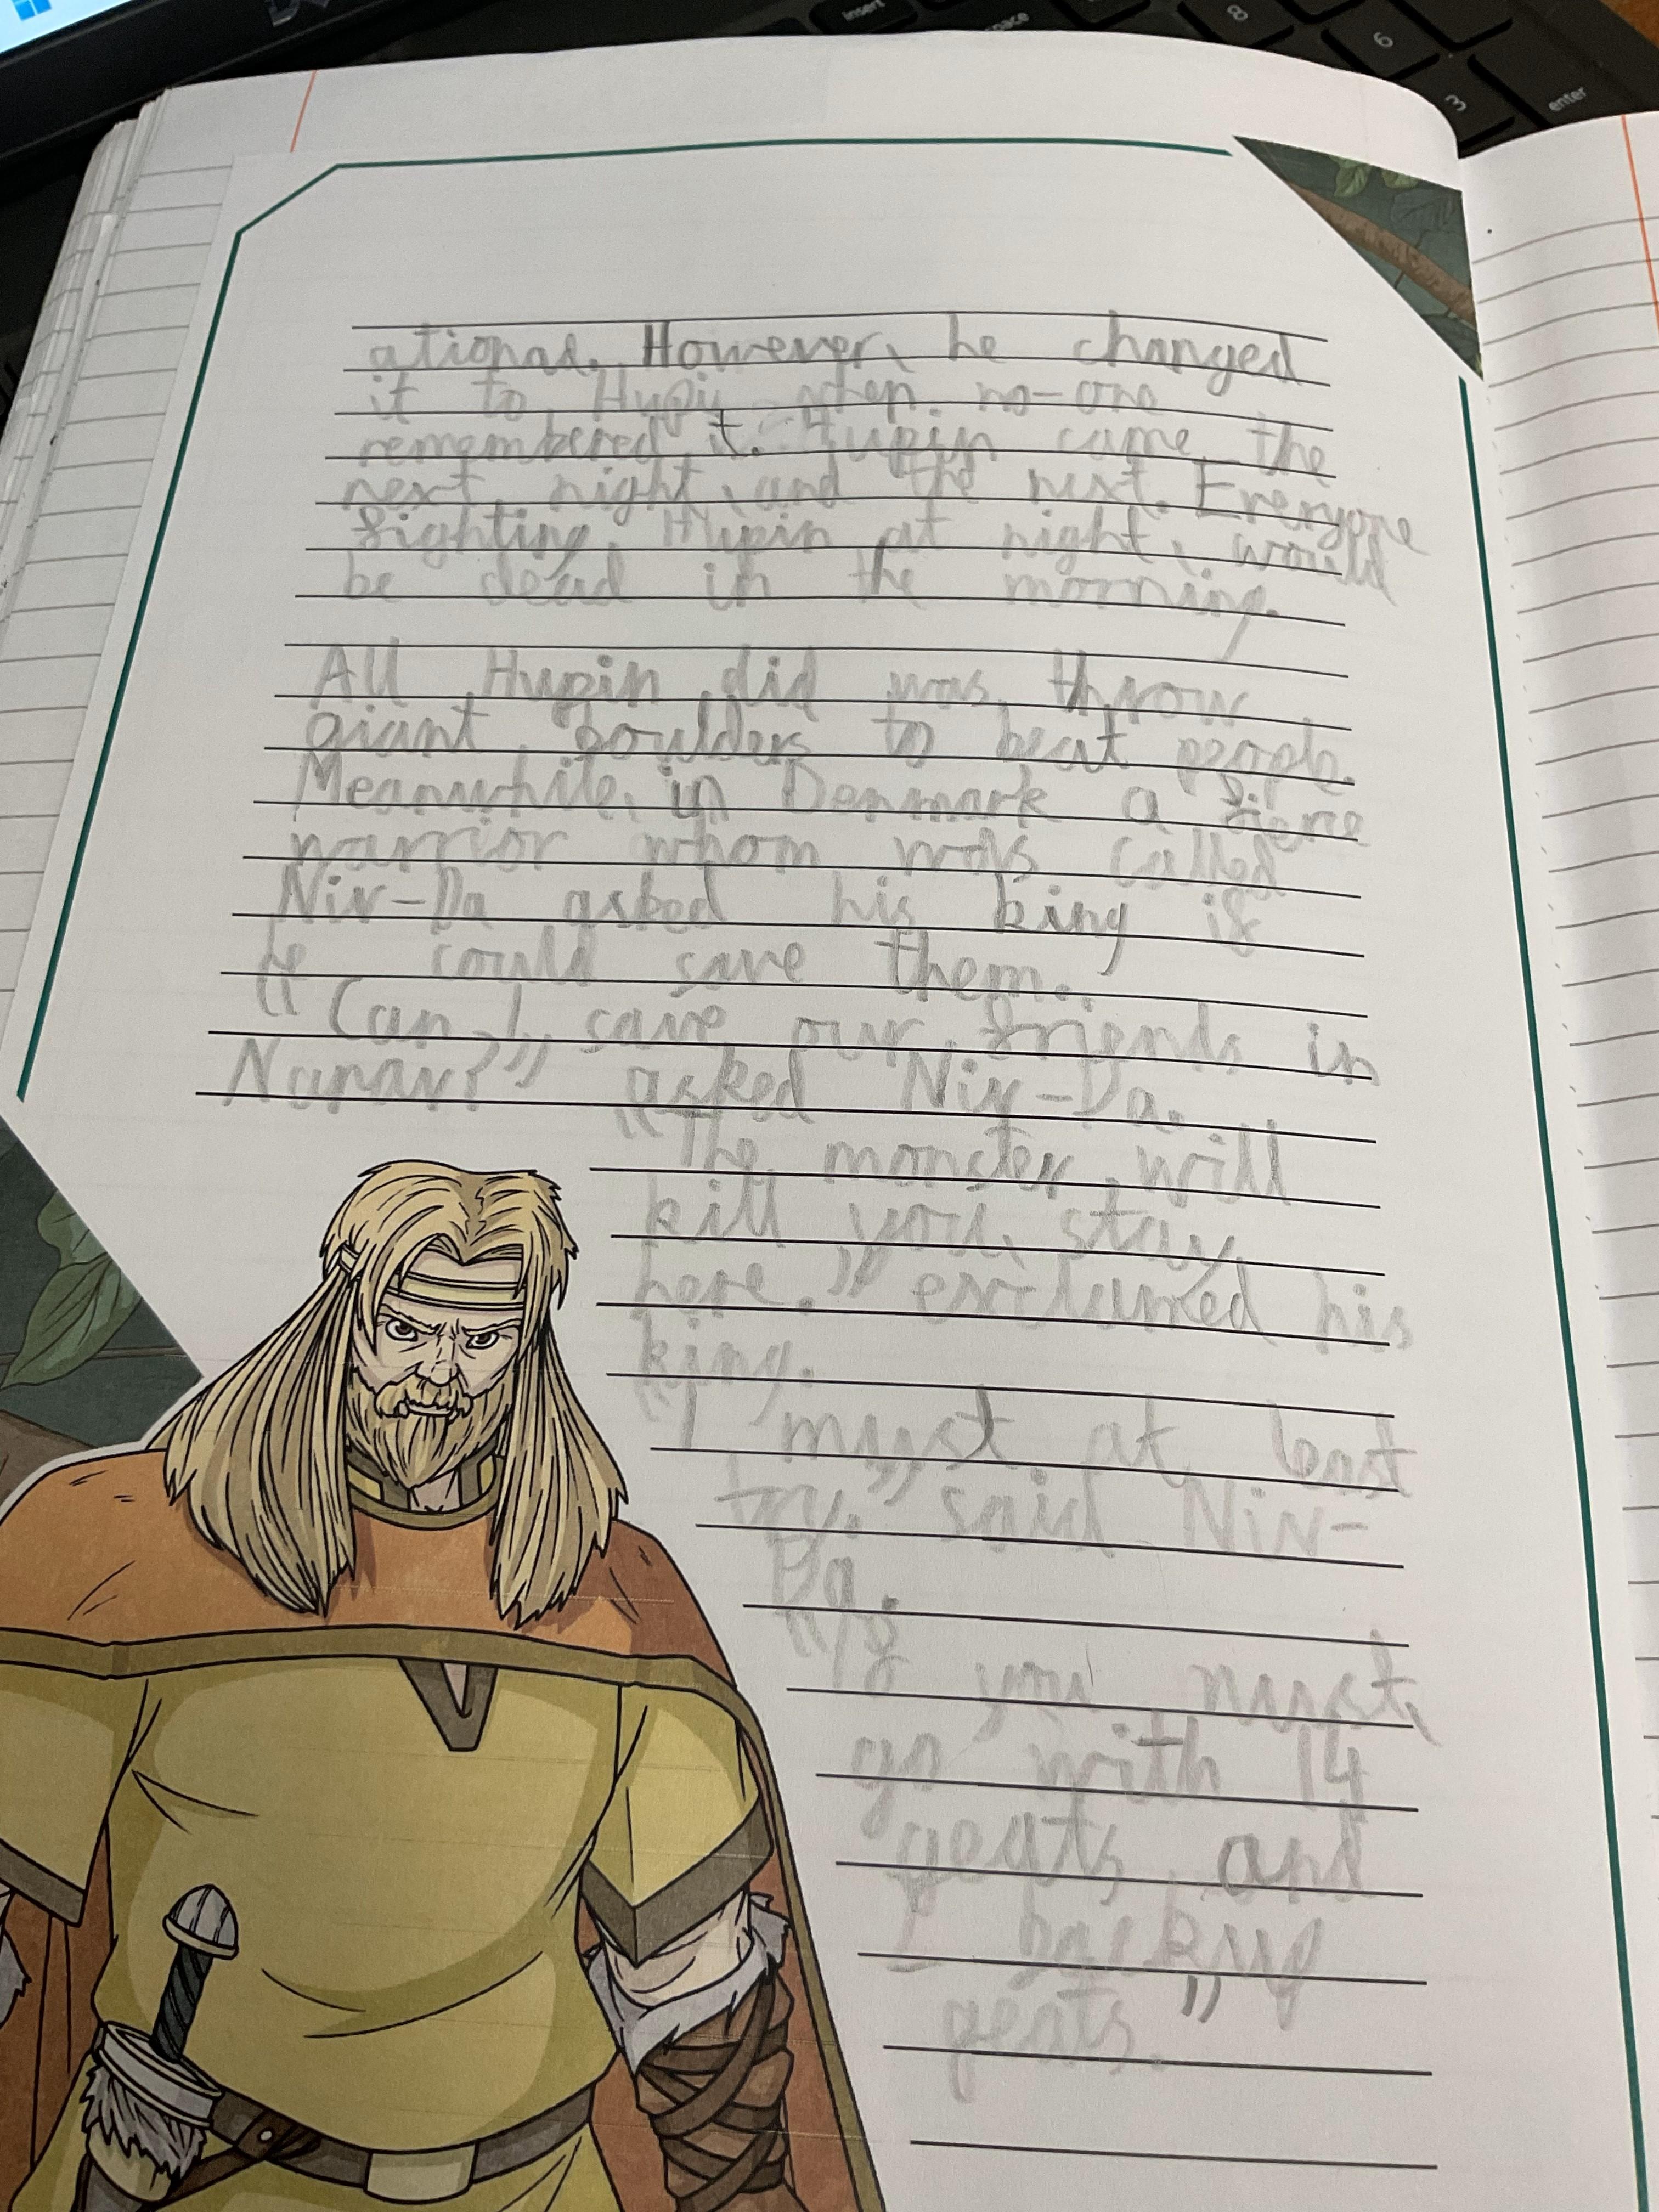 insert
space
8
6
3
enter
ational. However, he changed
it to Hupin when no-one
remembered it. Hupin came the
next night, and the next. Everyone
fighting Hupin at night, would
be dead in the morning.
All Hupin did was throw
giant boulders to beat people.
Meanwhile, in Denmark a fierce
warrior whom was called
Nir-Da asked his king if
he could save them.
"Can I save our friends in
asked Nir-Da.
"The monster will
kill you, stay
here." exclaimed his
king.
"I must at least
try." said Nir-
Da.
"If you must,
go with 14
geats and
backup
geats."